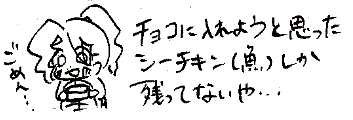 チョコに入れようと思った
シーチキン(魚)しか
残ってないや…
ごめん…